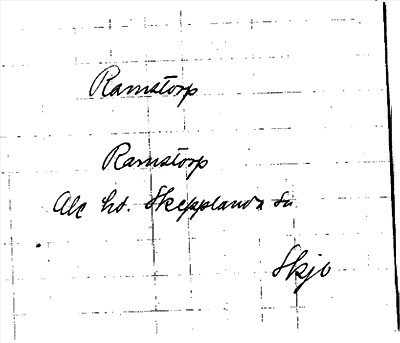 Ramstorp
Ramstorp
Ale hd. Skepplanda sn
Skjo